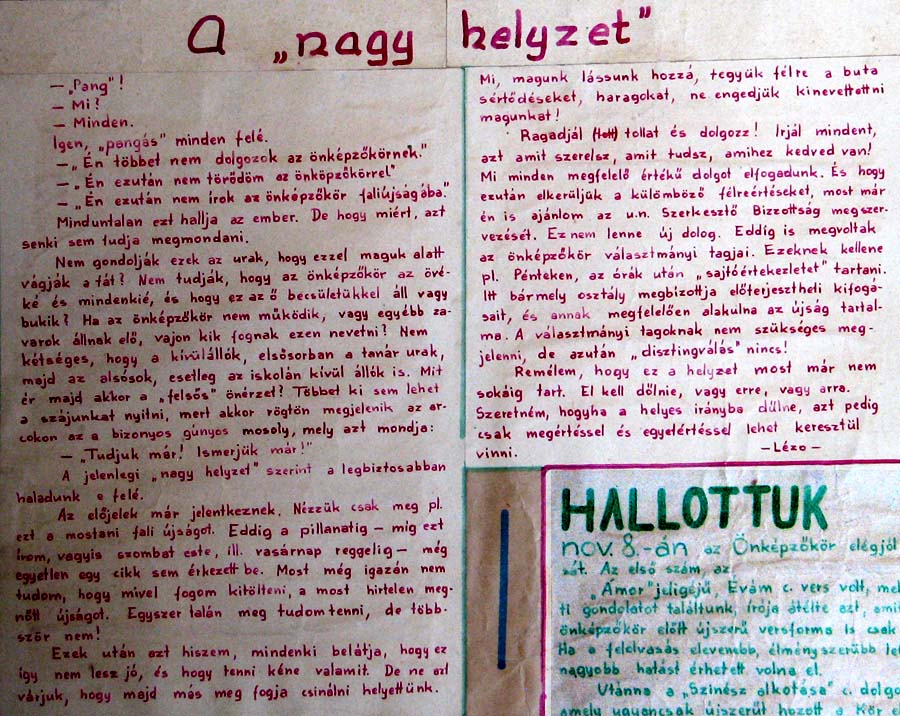 A „nagy helyzet"
— „Pang"!
— Mi?
— Minden.
Igen, „pangás" minden felé.
— „Én többet nem dolgozok az önképzőkörnek."
— „Én ezután nem törődöm az önképzőkörrel"
— „Én ezután nem írok az önképzőkör faliújságába."
Minduntalan ezt hallja az ember. De hogy miért, azt
senki sem tudja megmondani.
Nem gondolják ezek az urak, hogy ezzel maguk alatt
vágják a fát? Nem tudják, hogy az önképzőkör az övé-
ké és mindenkié, és hogy ez az ő becsületükkel áll vagy
bukik? Ha az önképzőkör nem működik, vagy egyébb za-
varok állnak elő, vajon kik fognak ezen nevetni? Nem
kétséges, hogy a kívülállók, elsősorban a tanár urak,
majd az alsósok, esetleg az iskolán kívül állók is. Mit
ér majd akkor a „felsős" önérzet? Többet ki sem lehet
a szájunkat nyitni, mert akkor rögtön megjelenik az ar-
cokon az a bizonyos gúnyos mosoly, mely azt mondja:
— „Tudjuk már! Ismerjük már!"
A jelenlegi „nagy helyzet" szerint a legbiztosabban
haladunk e felé.
Az előjelek már jelentkeznek. Nézzük csak meg pl.
ezt a mostani fali újságot. Eddig a pillanatig – míg ezt
írom, vagyis szombat este, ill. vasárnap reggelig – még
egyetlen egy cikk sem érkezett be. Most még igazán nem
tudom, hogy mivel fogom kitölteni, a most hirtelen meg-
nőtt újságot. Egyszer talán meg tudom tenni, de több-
ször nem!
Ezek után azt hiszem, mindenki belátja, hogy ez
így nem lesz jó, és hogy tenni kéne valamit. De ne azt
várjuk, hogy majd más meg fogja csinálni helyettünk.
Mi, magunk lássunk hozzá, tegyük félre a buta
sértődéseket, haragokat, ne engedjük kinevettetni
magunkat!
Ragadjál tollat és dolgozz! Irjál mindent,
azt amit szerelsz, amit tudsz, amihez kedved van!
Mi minden megfelelő értékű dolgot elfogadunk. És hogy
ezután elkerüljük a külömböző félreértéseket, most már
én is ajánlom az u.n. Szerkesztő Bizzottság megszer-
vezését. Ez nem lenne új dolog. Eddig is megvoltak
az önképzőkör választmányi tagjai. Ezeknek kellene
pl. Pénteken, az órák után „sajtóértekezletet" tartani.
Itt bármely osztály megbizottja előterjesztheti kifogá-
sait, és annak megfelelően alakulna az újság tartal-
ma. A választmányi tagoknak nem szükséges meg-
jelenni, de azután „disztingválás" nincs!
Remélem, hogy ez a helyzet most már nem
sokáig tart. El kell dőlnie, vagy erre, vagy arra.
Szeretném, hogyha a helyes irányba dűlne, azt pedig
csak megértéssel és egyetértéssel lehet keresztül
vinni.
– Lézo –
HALLOTTUK
nov. 8.-án az Önképzőkör elégjól
sát. Az első szám az
„Ámor" jeligéjű, Évám c. vers volt, mel
ti gondolatot találtunk, írója átélte azt, amit
önképzőkör előtt újszerű versforma is csak
Ha a felolvasás elevenebb, élményszerűbb let
nagyobb hatást érhetett volna el.
Utánna a „Szinész alkotása" c. dolgo
amely ugyancsak újszerűt hozott a Kör e